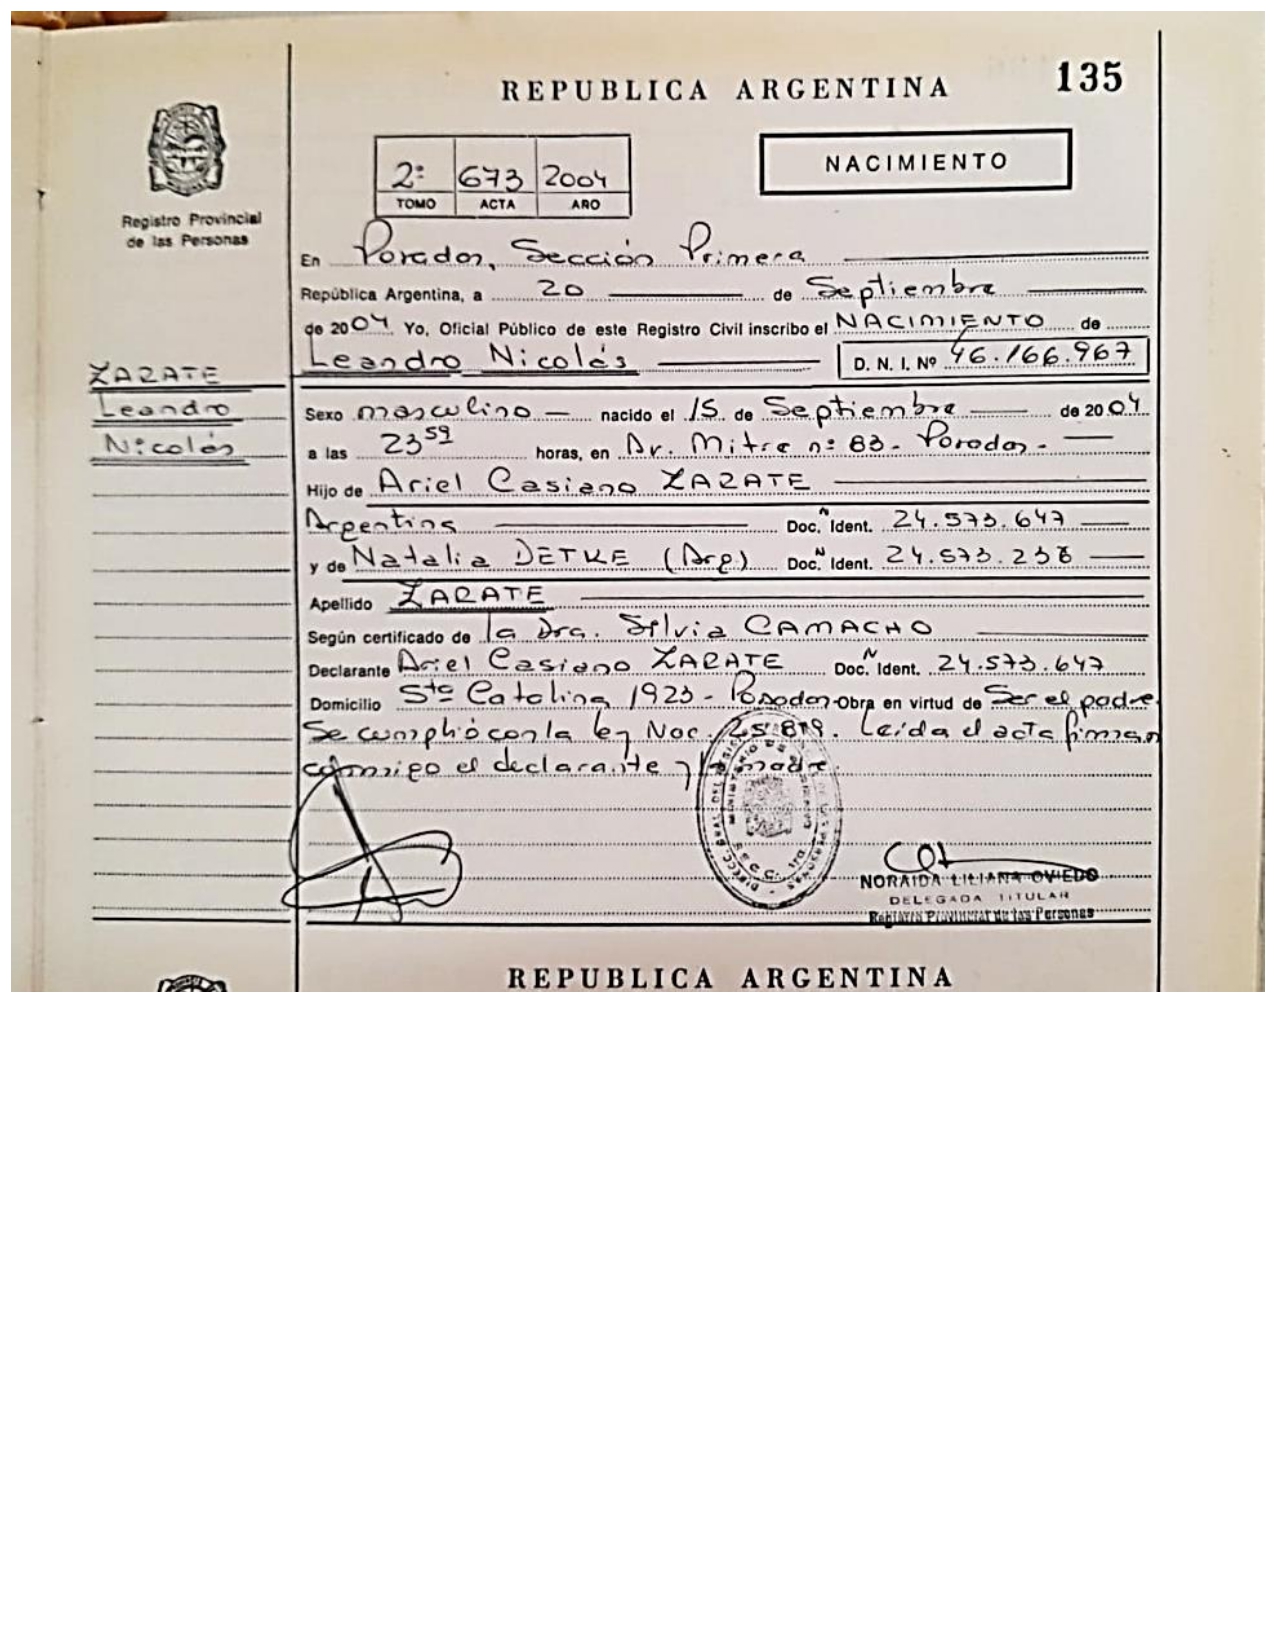 REPUBLICA ARGENTINA
135
Registro Provincial
de las Personas
2º 673 2004
TOMO ACTA AÑO
NACIMIENTO
En Posadas, Sección Primera
República Argentina, a 20 de Septiembre
de 2004 Yo, Oficial Público de este Registro Civil inscribo el NACIMIENTO de
Leandro Nicolás D. N. I. Nº 46.166.967
ZARATE
Leandro
Nicolás
Sexo masculino — nacido el 15 de Septiembre de 2004
a las 23 59 horas, en Av. Mitre nº 83 - Posadas -
Hijo de Ariel Casiano ZARATE
Argentina Doc. N Ident. 24.573.647
y de Natalia DETKE (Arg) Doc. N Ident. 24.573.238
Apellido ZARATE
Según certificado de la Dra. Silvia CAMACHO
Declarante Ariel Casiano ZARATE Doc. N Ident. 24.573.647
Domicilio Sta Catalina 1923 - Posadas Obra en virtud de Ser el padre
Se cumplió con la ley Nac. 25.819. Leída el acta firman
conmigo el declarante y la madre.
NORAIDA LILIANA OVIEDO
DELEGADA TITULAR
Registro Provincial de las Personas
REPUBLICA ARGENTINA